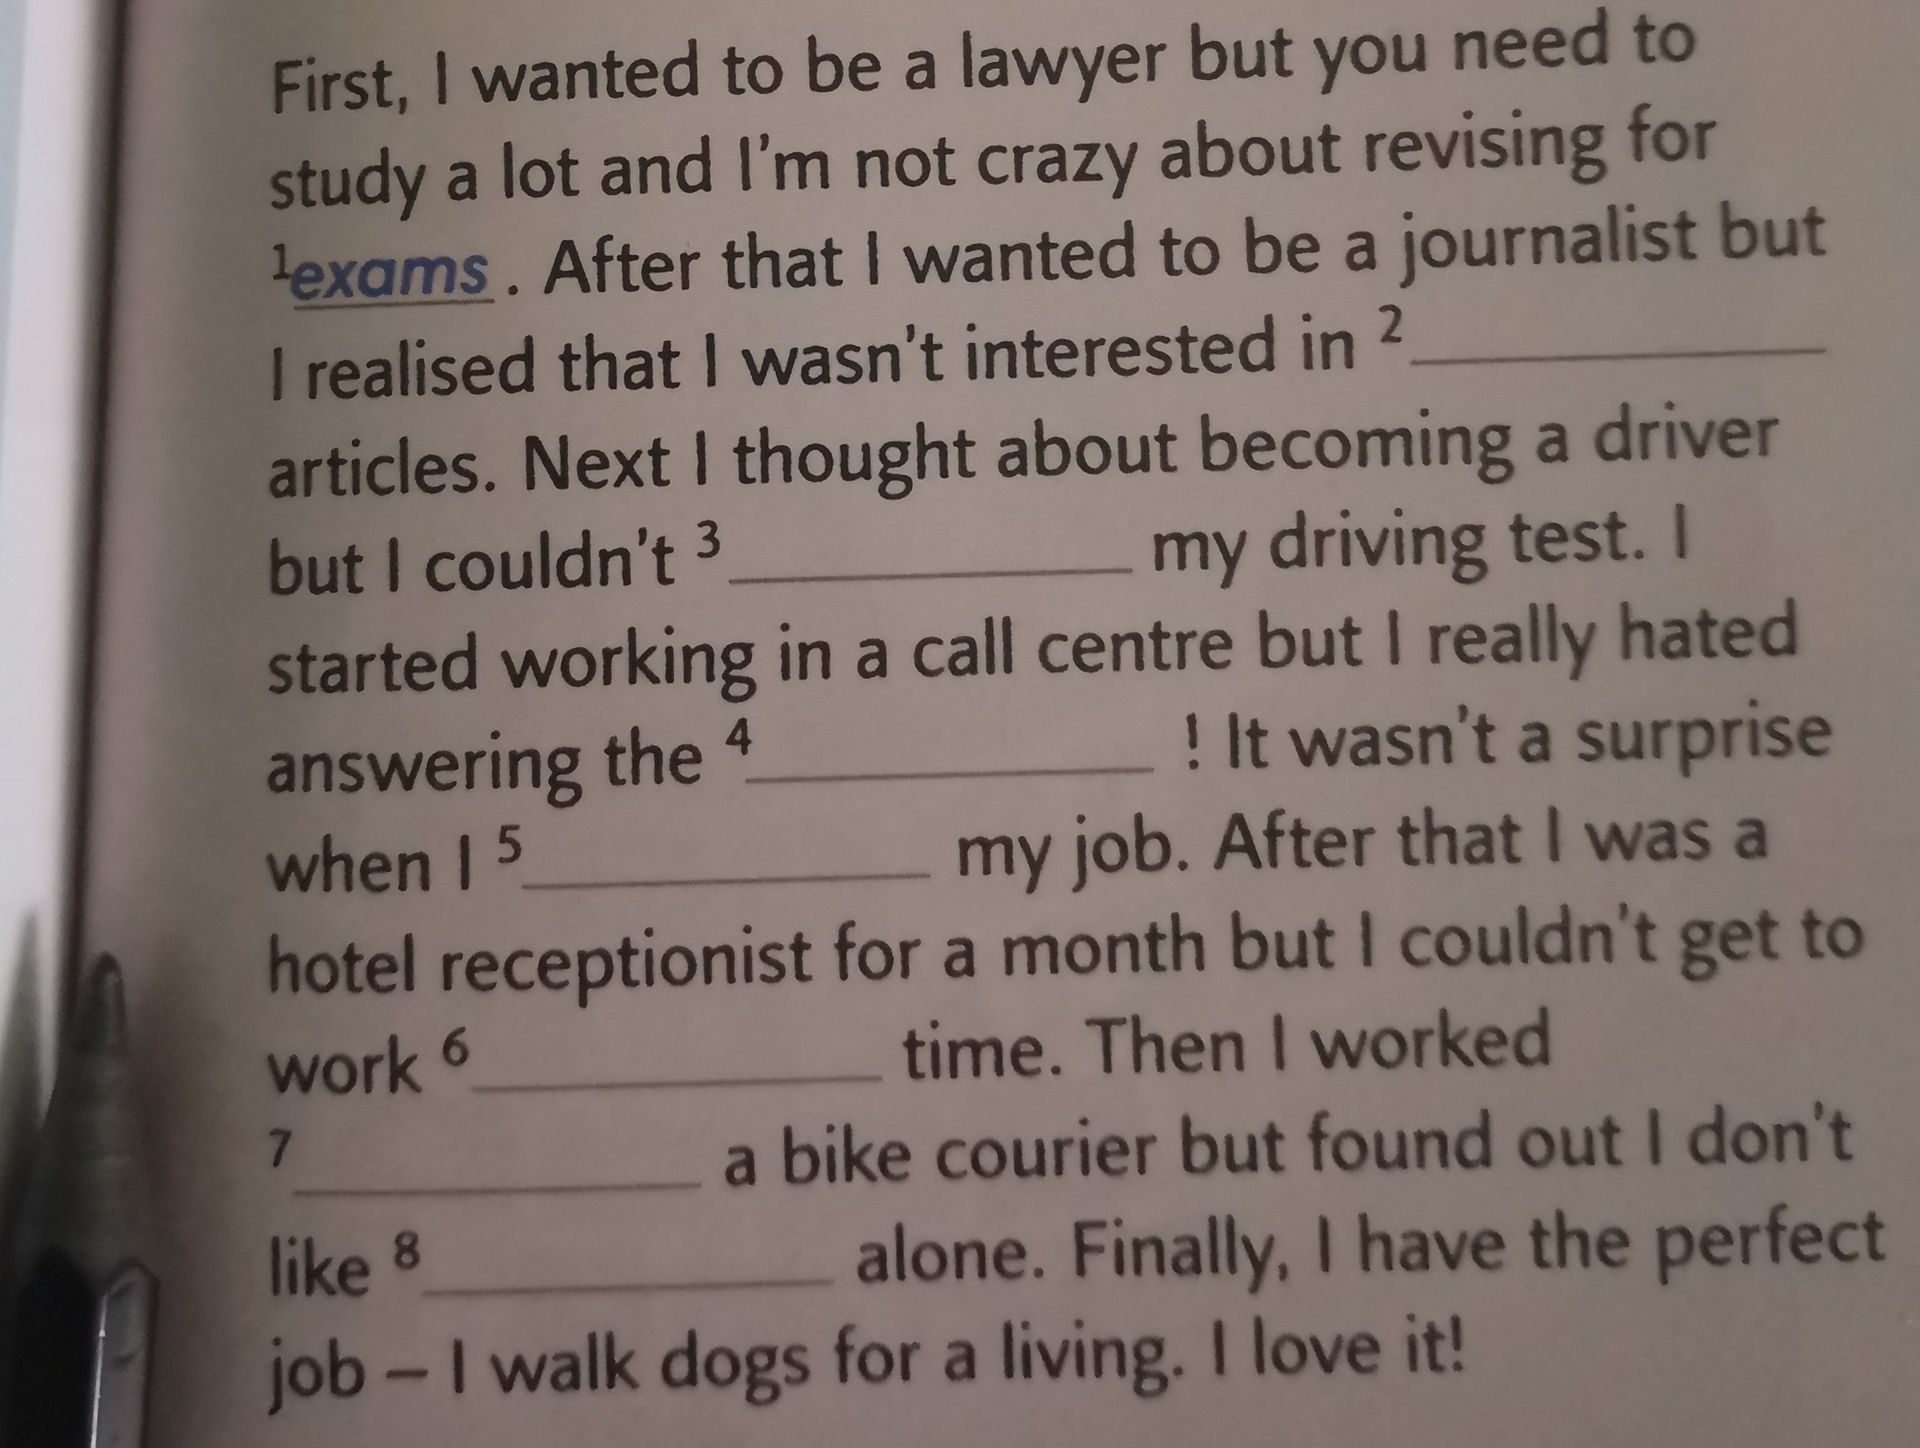 First, I wanted to be a lawyer but you need to
study a lot and I'm not crazy about revising for
1 exams . After that I wanted to be a journalist but
I realised that I wasn't interested in 2 ____________
articles. Next I thought about becoming a driver
but I couldn't 3 ____________ my driving test. I
started working in a call centre but I really hated
answering the 4 ____________ ! It wasn't a surprise
when I 5 ____________ my job. After that I was a
hotel receptionist for a month but I couldn't get to
work 6 ____________ time. Then I worked
7 ____________ a bike courier but found out I don't
like 8 ____________ alone. Finally, I have the perfect
job – I walk dogs for a living. I love it!